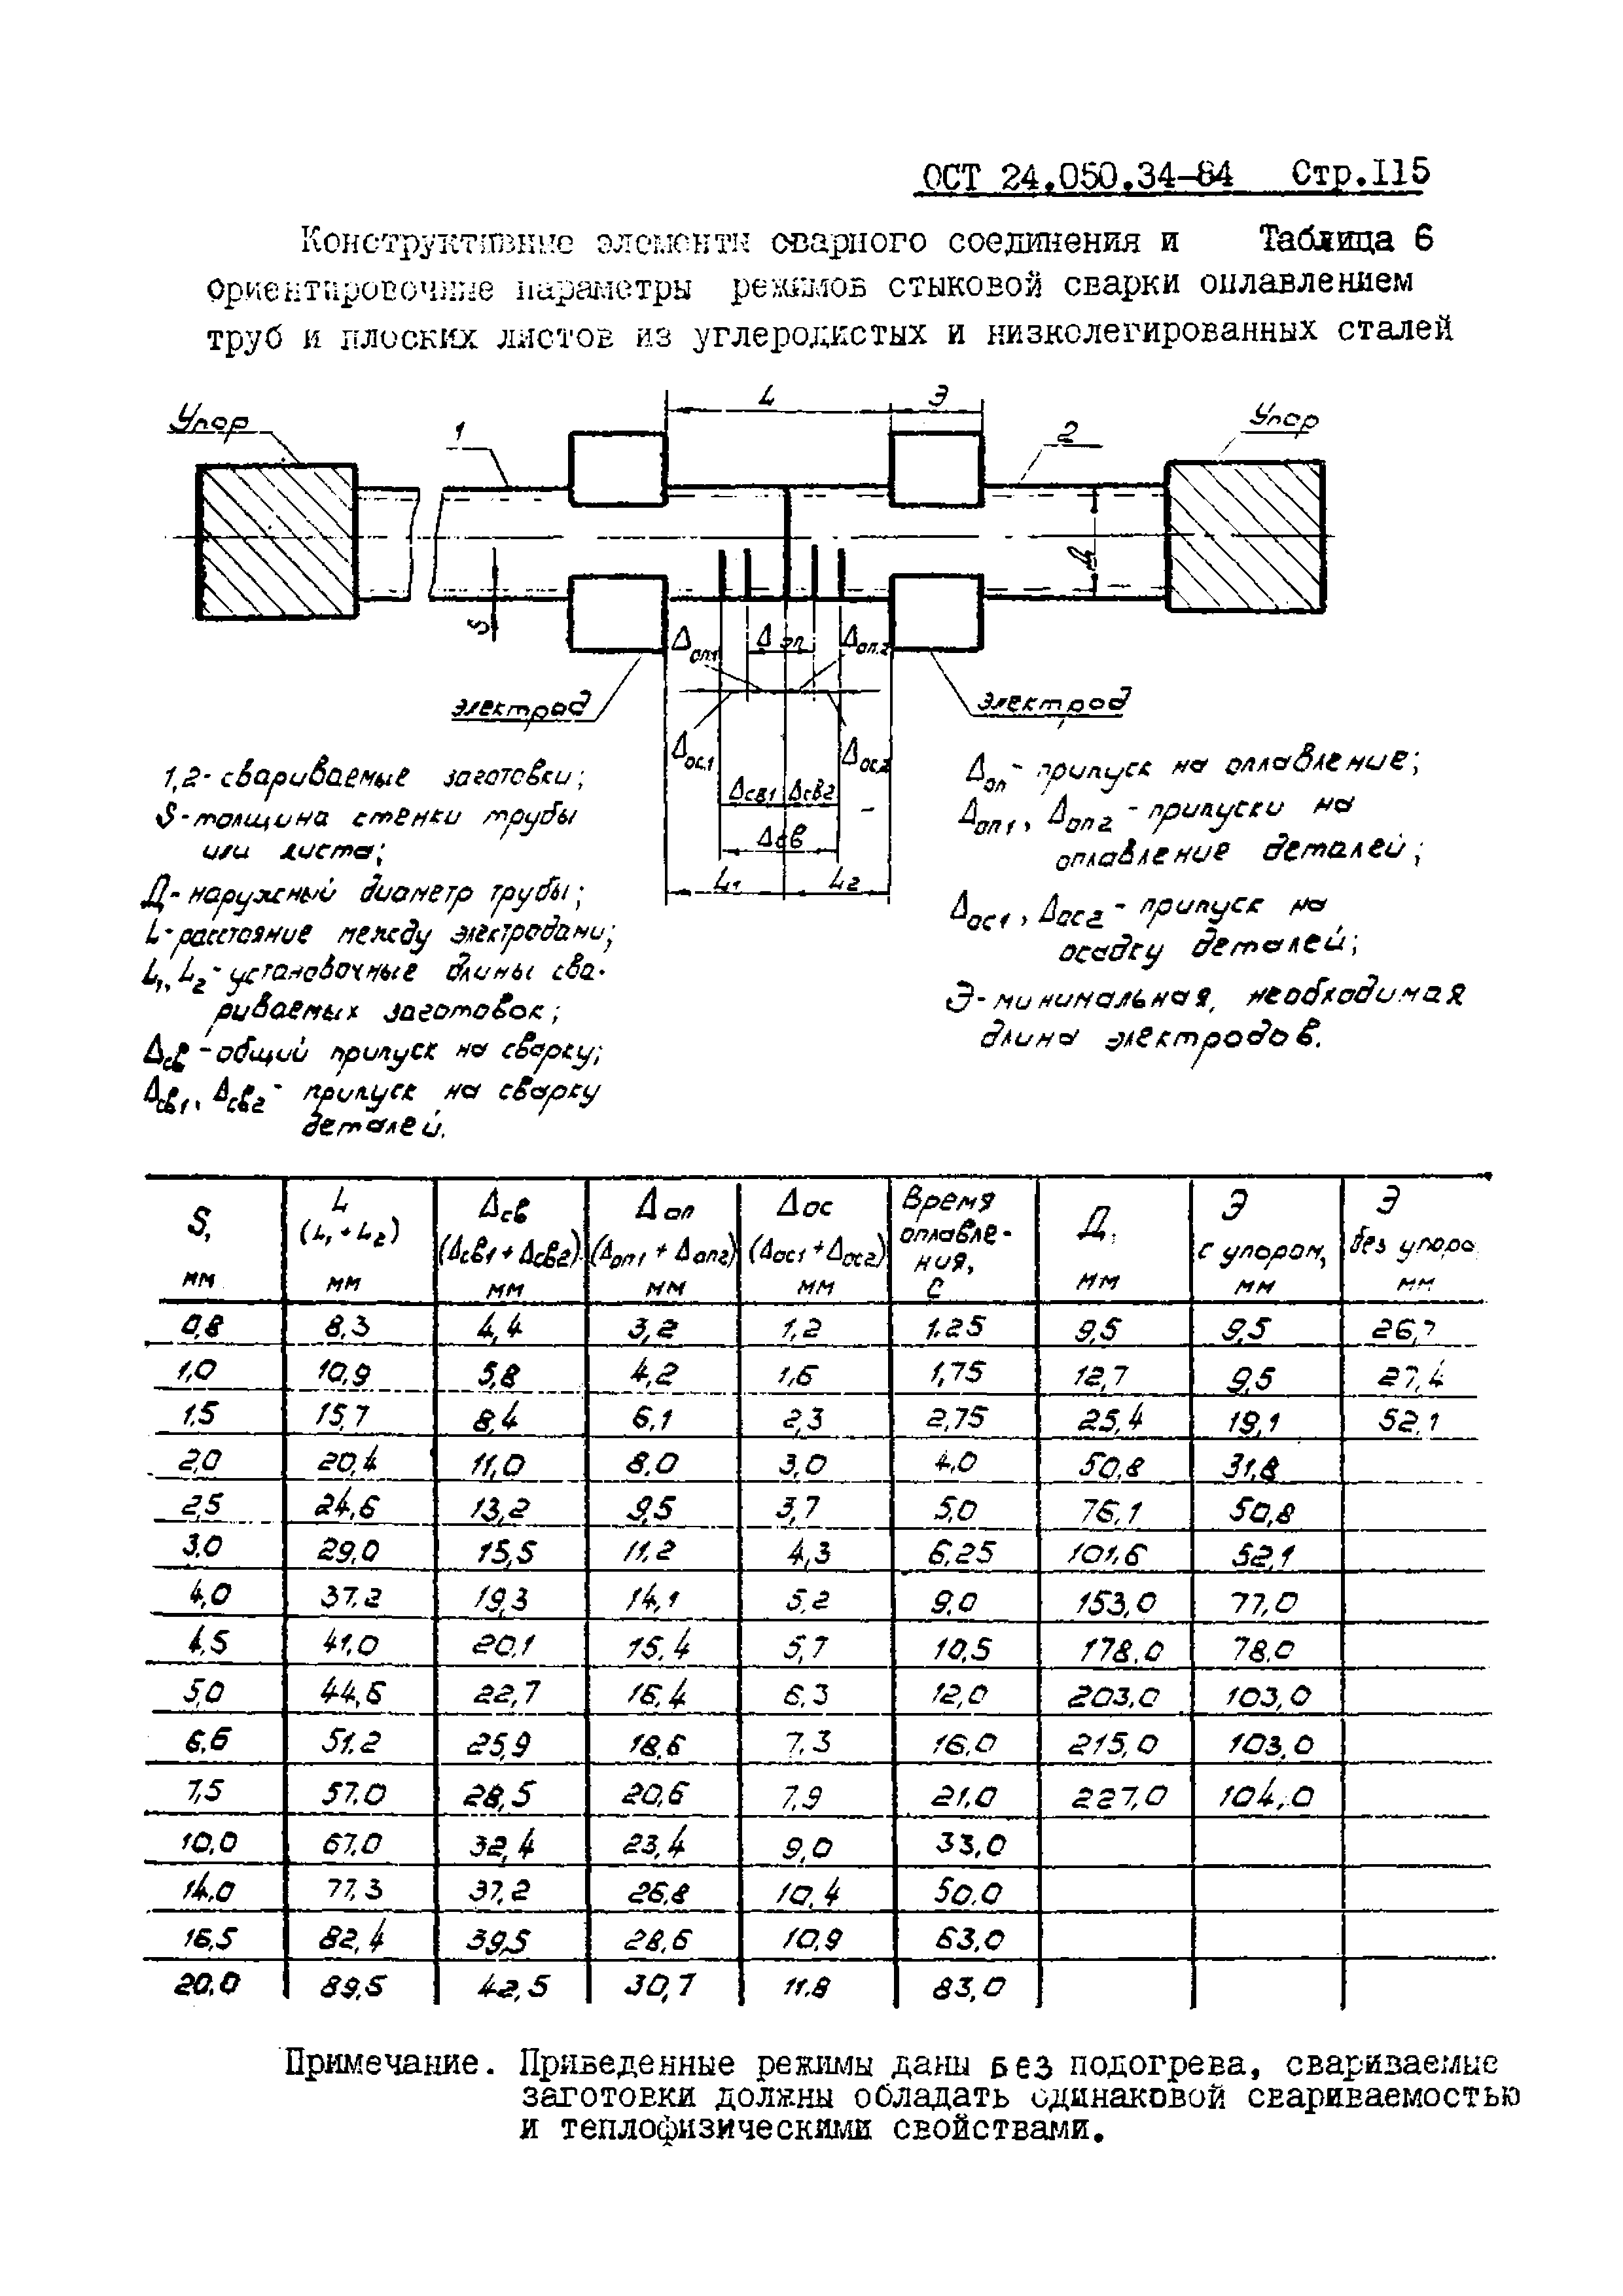 ОСТ 24.050.34-84 Стр.115
Конструктивные элементы сварного соединения и Таблица 6
ориентировочные параметры режимов стыковой сварки оплавлением
труб и плоских листов из углеродистых и низколегированных сталей
L Э
Упор 1 2 Упор
Д
S
Δоп1 Δоп Δоп.2
электрод электрод
Δос.1 Δос2
Δсв1 Δсв2
Δсв
L1 L2
1,2- свариваемые заготовки;
S-толщина стенки трубы
или листа;
Д- наружный диаметр трубы;
L-расстояние между электродами;
L1, L2- установочные длины сва-
риваемых заготовок;
Δсв -общий припуск на сварку;
Δсв1, Δсв2- припуск на сварку
деталей.
Δоп- припуск на оплавление;
Δоп1, Δоп2 - припуски на
оплавление деталей;
Δос1, Δос2 - припуск на
осадку деталей;
Э- минимальная, необходимая
длина электродов.
S, мм L (L1+L2) мм Δсв (Δсв1+Δсв2) мм Δоп (Δоп1+Δоп2) мм Δос (Δос1+Δос2) мм Время оплавле-ния, с Д, мм Э с упором, мм Э без упора мм
0,8 8,3 4,4 3,2 1,2 1.25 9,5 9,5 26,7
1,0 10,9 5,8 4,2 1,6 1,75 12,7 9,5 27,4
1,5 15,7 8,4 6,1 2,3 2,75 25,4 19,1 52,1
2,0 20,4 11,0 8.0 3,0 4,0 50,8 31,8
2,5 24,6 13,2 9,5 3,7 5,0 76,1 50,8
3,0 29,0 15,5 11,2 4,3 6,25 101,6 52,1
4,0 37,2 19,3 14,1 5,2 9,0 153,0 77,0
4,5 41,0 20,1 15,4 5,7 10,5 178,0 78,0
5,0 44,6 22,7 16,4 6,3 12,0 203,0 103,0
6,6 51,2 25,9 18,6 7,3 16,0 215,0 103,0
7,5 57,0 28,5 20,6 7,9 21,0 227,0 104,0
10,0 67,0 32,4 23,4 9,0 33,0
14,0 77,3 37,2 26,8 10,4 50,0
16,5 82,4 39,5 28,6 10,9 63,0
20,0 89,5 42,5 30,7 11,8 83,0
Примечание. Приведенные режимы даны без подогрева, свариваемые
заготовки должны обладать одинаковой свариваемостью
и теплофизическими свойствами.